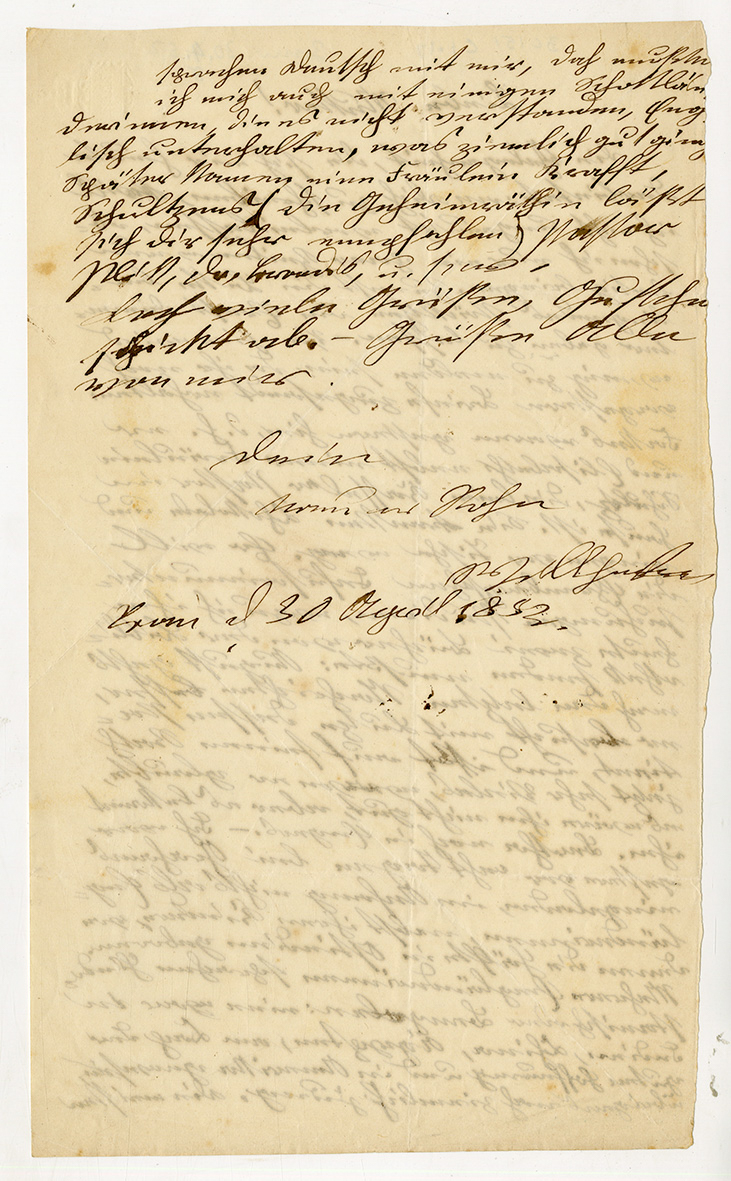 sprachen Deutsch mit mir, doch mußte
ich mich auch mit einigen Schottlän
derinnen, die es nicht verstanden, Eng
lisch unterhalten, was ziemlich gut ging
Später kamen eine Fräulein Krafft,
Schultzens (die Geheimräthin läßt
sich dir sehr empfehlen) Pastor
Plitt, Dr. Brandis, u. s.w.
viele Grüße,
schickt ab. – Grüße Alle
von mir.
Dein
treuer Sohn
Bonn d 30 April 1852.